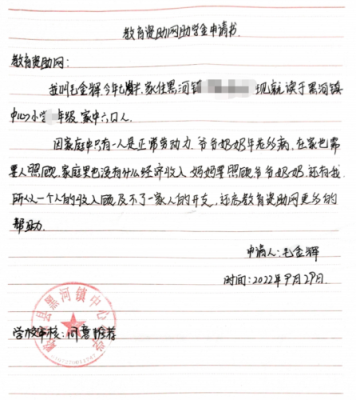 教育资助网助学金申请书
教育资助网：
我叫毛金辉今年七岁半，家住黑河镇 现就读于黑河镇
中心小学 年级，家中六口人
因家庭中只有一人是正常劳动力，爷爷奶奶年老多病，在家也需
要人照顾，家庭里也没有什么经济收入，妈妈要照顾爷爷奶奶，还有我，
所以一个人的收入顾及不了一家人的开支，还忘教育资助网更多的
帮助
申请人：毛金辉
时间：2022年9月29日
学校审核：同意推荐
县黑河镇中心